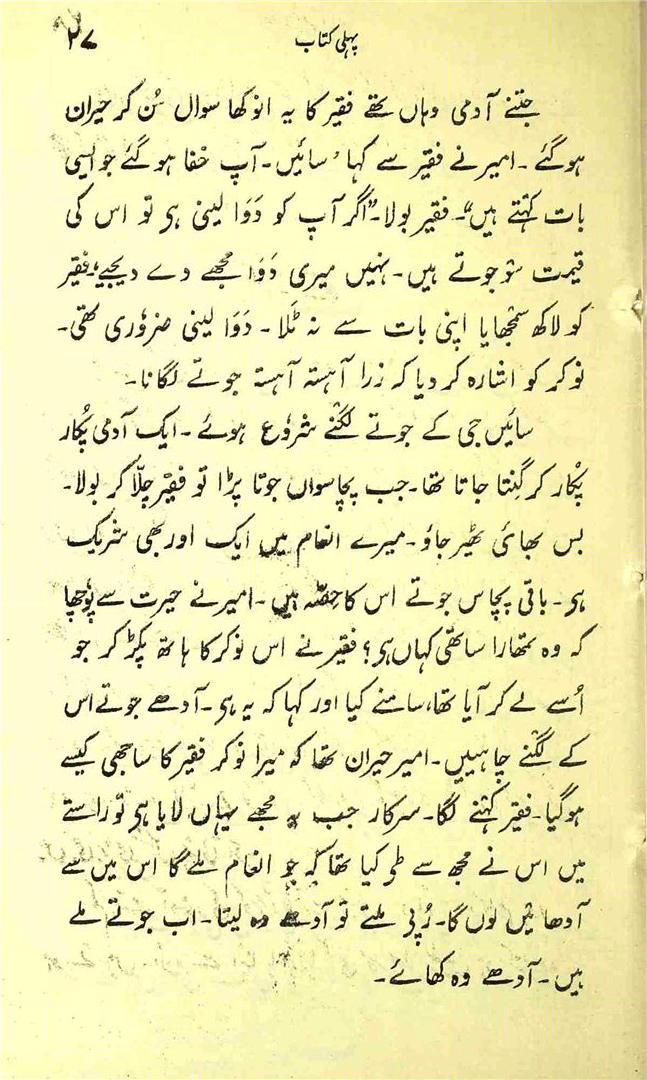 پہلی کتاب ۲۷
جتنے آدمی وہاں تھے فقیر کا یہ انوکھا سوال سُن کر حیران
ہوگئے ۔ امیر نے فقیر سے کہا ‘ سائیں ۔ آپ خفا ہوگئے جو ایسی
بات کہتے ہیں“۔ فقیر بولا۔”اگر آپ کو دَوَا لینی ہی تو اس کی
قیمت سَو جوتے ہیں۔ نہیں میری دَوَا مجھے دے دیجیے“۔ فقیر
کو لاکھ سمجھایا اپنی بات سے نہ ٹَلا ۔ دَوَا لینی ضرُوری تھی۔
نوکر کو اشارہ کر دیا کہ زرا آہستہ آہستہ جوتے لگانا ۔
سائیں جی کے جوتے لگنے شرُوع ہوئے ۔ ایک آدمی پُکار
پُکار کر گِنتا جاتا تھا ۔ جب پچاسواں جوتا پڑا تو فقیر چِلّا کر بولا۔
بس بھائی ٹھیر جاؤ ۔ میرے انعام میں ایک اور بھی شریک
ہی ۔ باقی پچاس جوتے اس کا حصّہ ہیں ۔ امیر نے حیرت سے پُوچھا
کہ وہ تمھارا ساتھی کہاں ہی؟ فقیر نے اس نوکر کا ہاتھ پکڑ کر جو
اُسے لے کر آیا تھا، سامنے کیا اور کہا کہ یہ ہی ۔ آدھے جوتے اس
کے لگنے چاہییں ۔ امیر حیران تھا کہ میرا نوکر فقیر کا ساجھی کیسے
ہوگیا ۔ فقیر کہنے لگا ۔ سرکار جب یہ مجھے یہاں لایا ہی تو راستے
میں اس نے مجھ سے طی کیا تھا کہ جو انعام ملے گا اس میں سے
آدھا میں لوں گا ۔ رُپی ملتے تو آدھے وہ لیتا ۔ اب جوتے ملے
ہیں ۔ آدھے وہ کھائے ۔